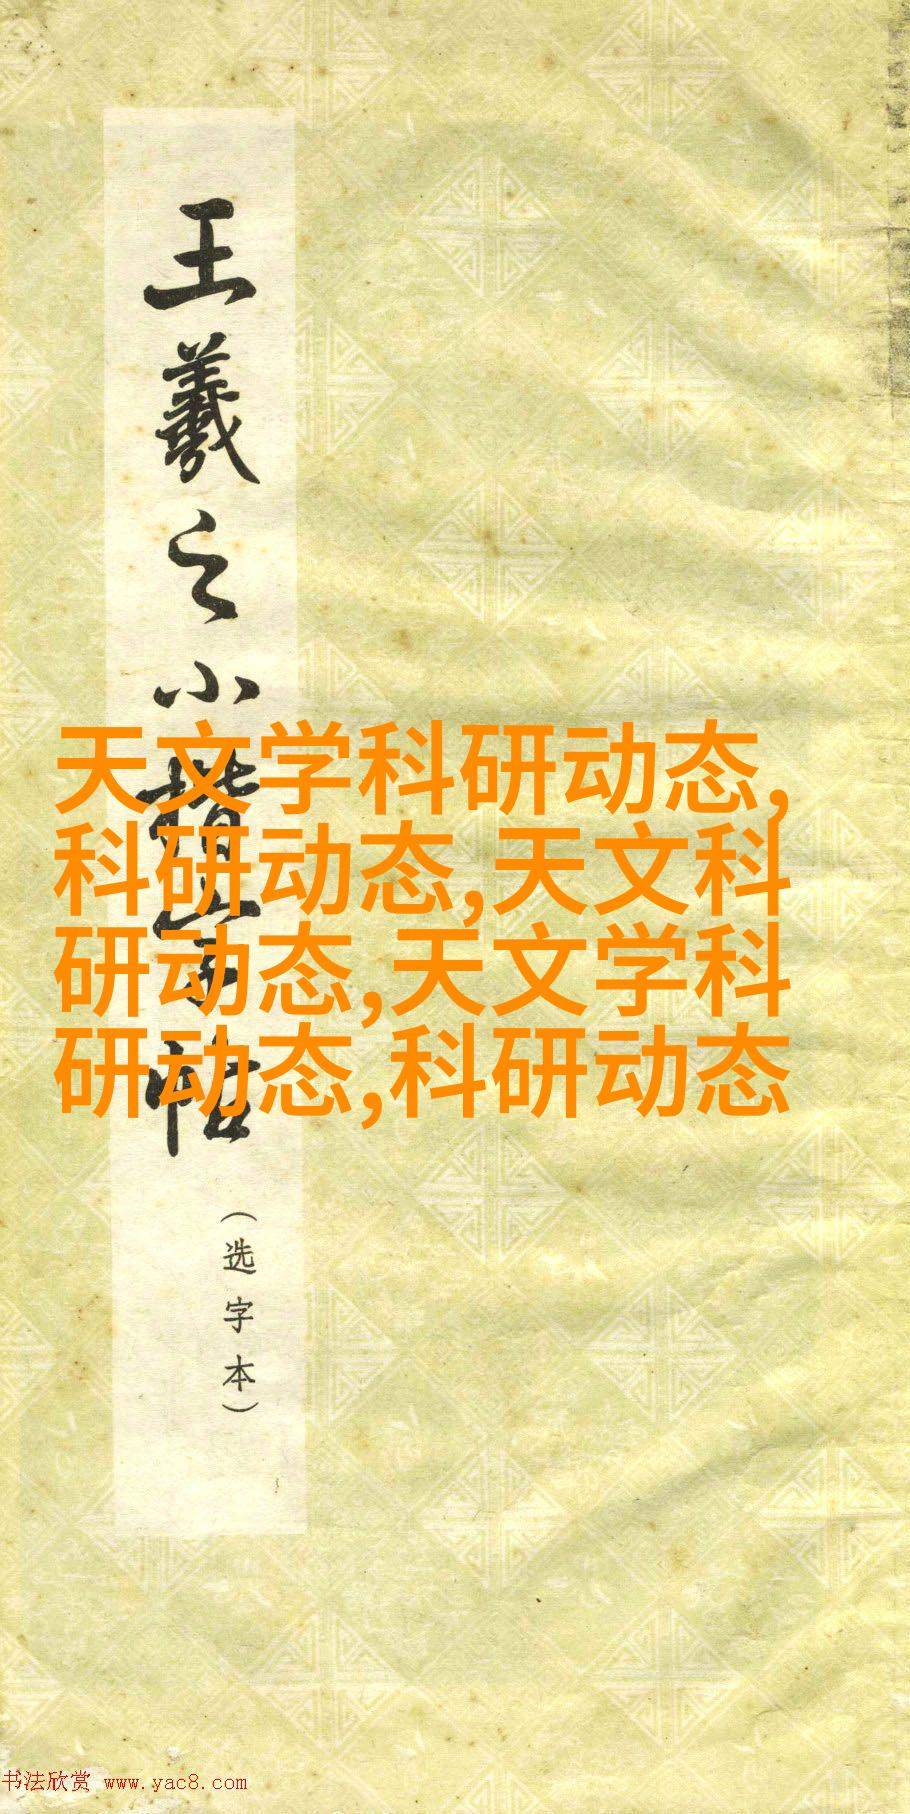 王羲之小楷字帖
(选字本)
天文学科研动态,
科研动态,天文科
研动态,天文学科
研动态,科研动态
书法欣赏 www.yac8.com